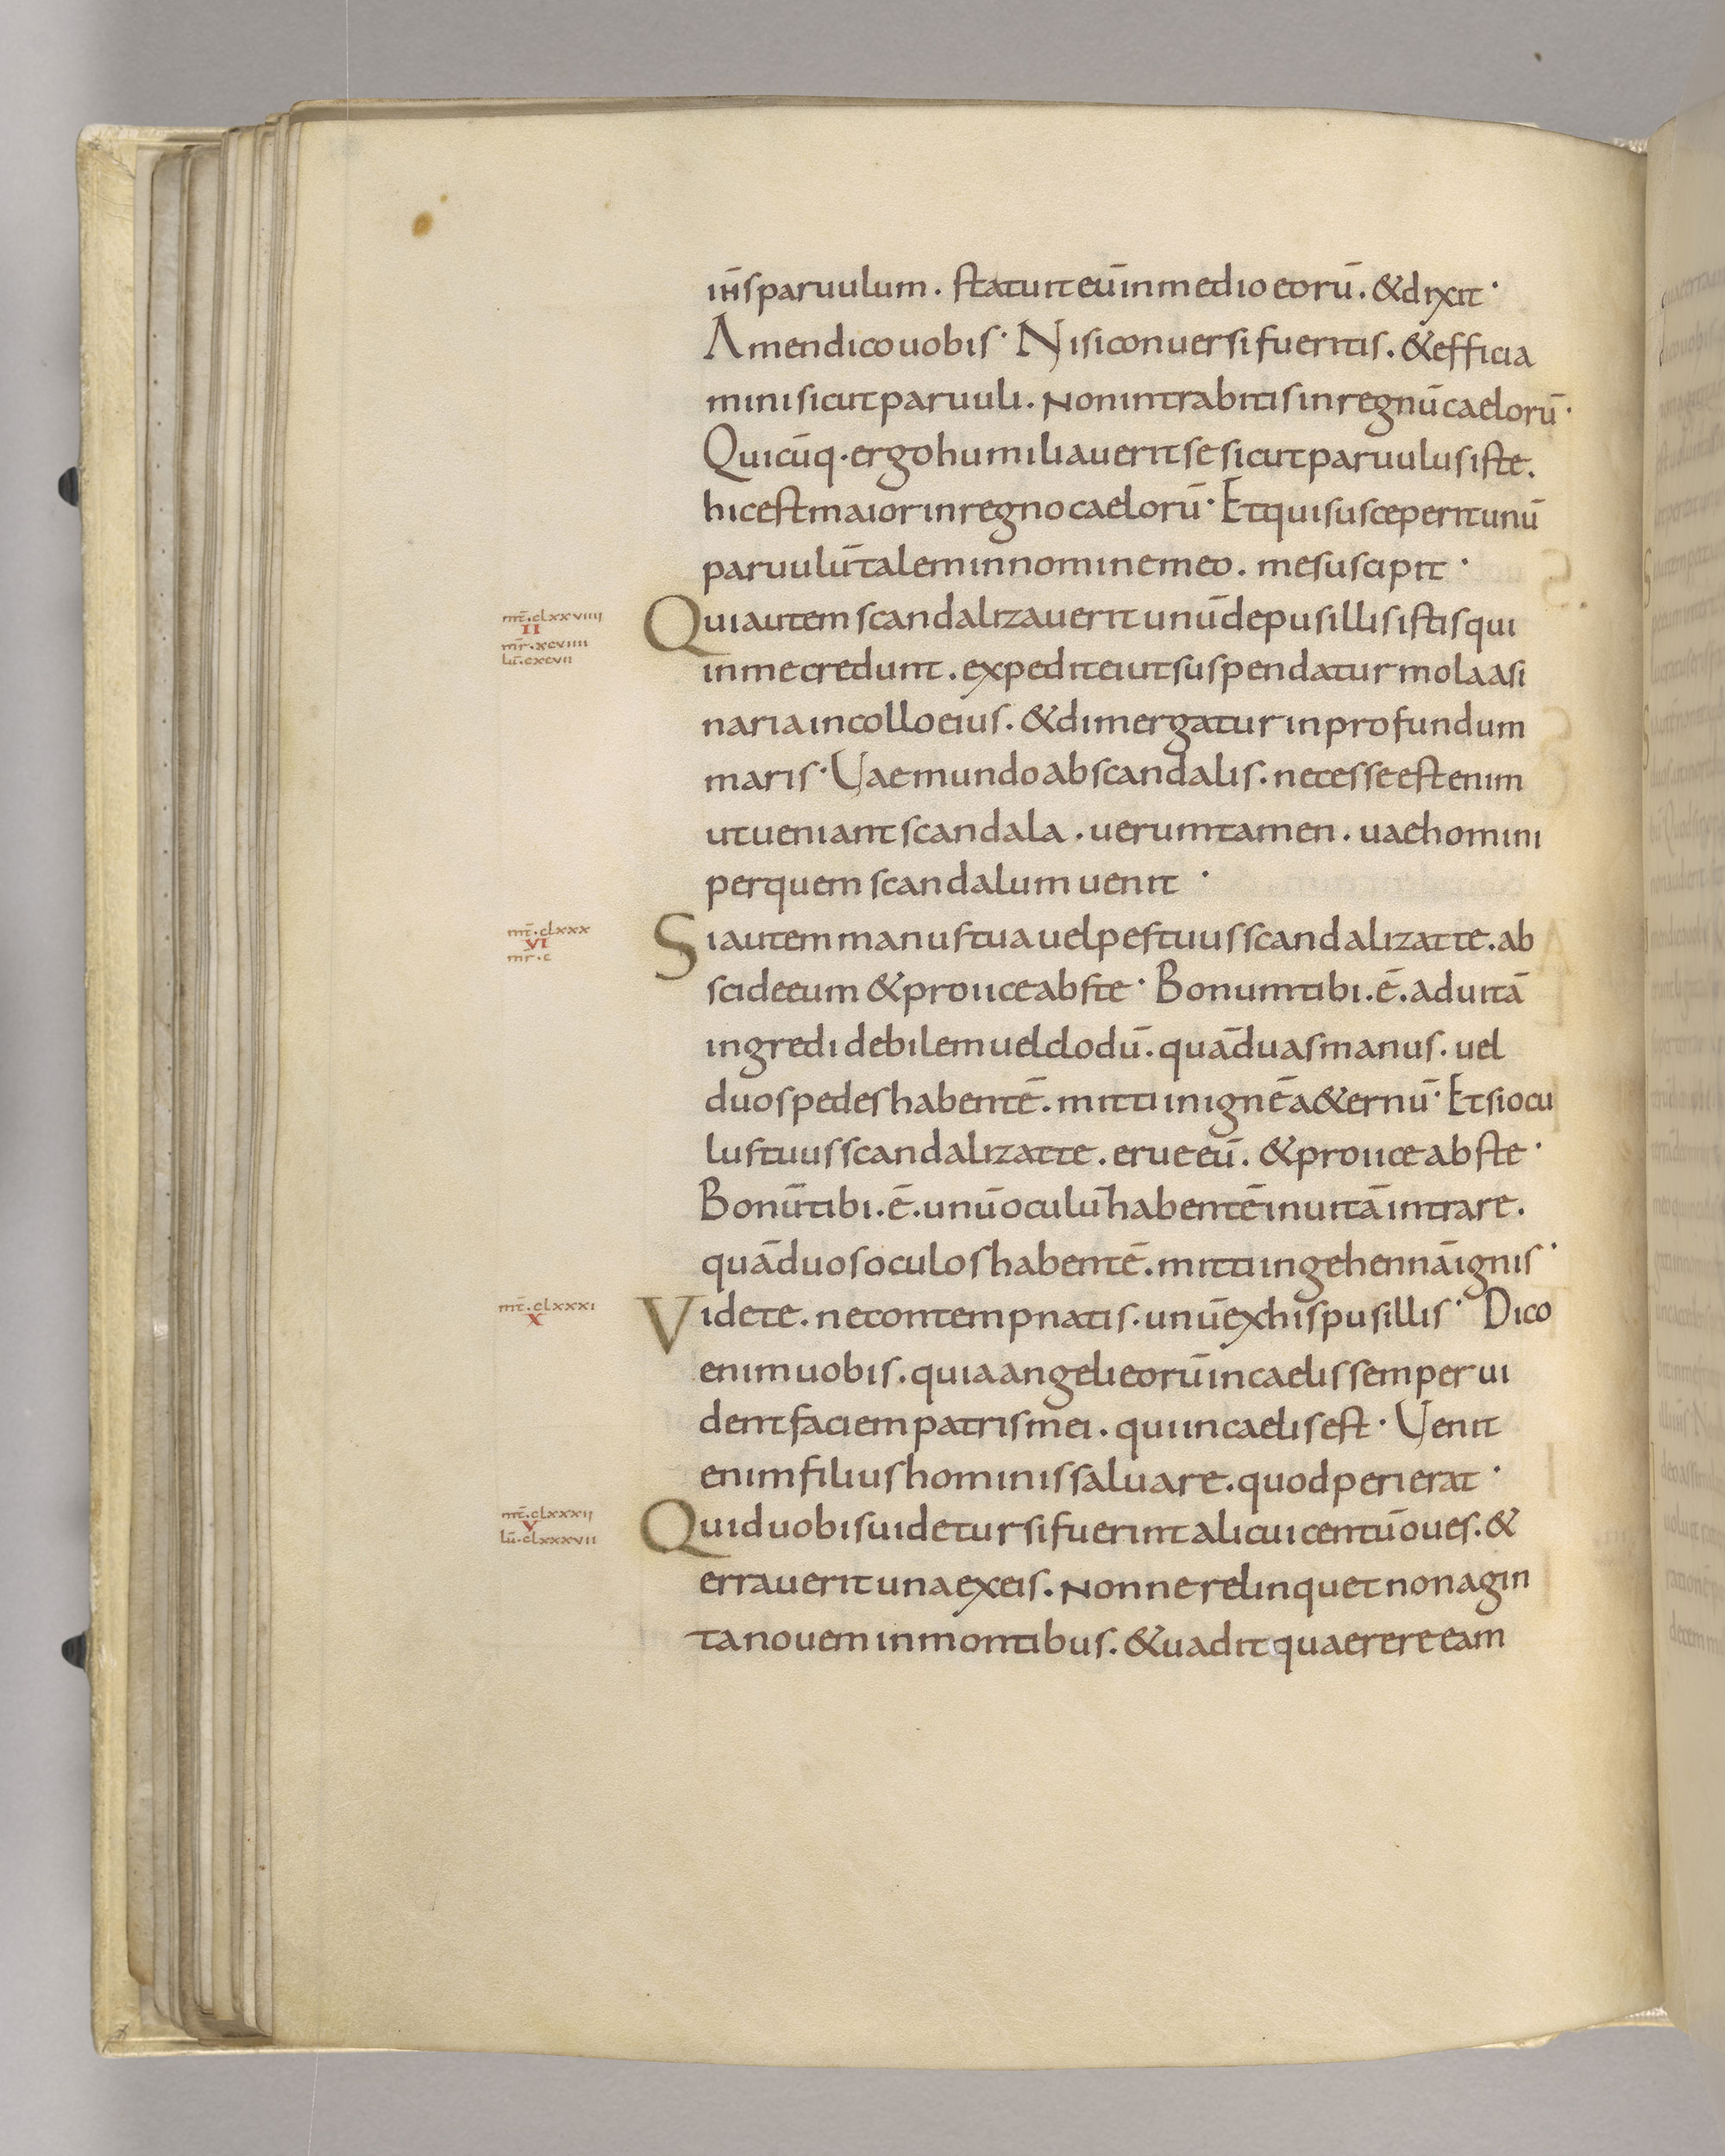 ih̄s paruulum. statuit eū in medio eorū. & dixit·
Amen dico uobis· Nisi conuersi fueritis. & efficia
mini sicut paruuli. Non intrabitis in regnū caelorū·
Quicūq· ergo humiliauerit se sicut paruulus iste.
hic est maior in regno caelorū· Et qui susceperit unū
paruulū talem in nomine meo. me suscipit·
mt̄. clxxviiii
II
mr̄. xcviiii
lū. cxcvii
Qui autem scandalizauerit unū de pusillis istis qui
in me credunt. expedit ei ut suspendatur mola asi
naria in collo eius. & dimergatur in profundum
maris· Vae mundo ab scandalis. necesse est enim
ut ueniant scandala. uerumtamen. uae homini
per quem scandalum uenit·
mt̄. clxxx
VI
mr. c
Si autem manus tua uel pes tuus scandalizat te. ab
scide eum & proiice abs te· Bonum tibi. ē. ad uitā
ingredi debilem uel clodū. quā duas manus. uel
duos pedes habentē. mitti in ignē a&ernū· Et si ocu
lus tuus scandalizat te. erue eū. & proiice abs te·
Bonū tibi. ē. unū oculū habentē in uitā intrare.
quā duos oculos habentē. mitti in gehennā ignis·
mt̄. clxxxi
X
Videte. ne contempnatis. unū ex his pusillis· Dico
enim uobis. quia angeli eorū in caelis semper ui
dent faciem patris mei. qui in caelis est· Venit
enim filius hominis saluare. quod perierat·
mt̄. clxxxii
V
lū. clxxxvii
Quid uobis uidetur si fuerint alicui centū oues. &
errauerit una ex eis. Nonne relinquet nonagin
ta nouem in montibus. & uadit quaerere eam